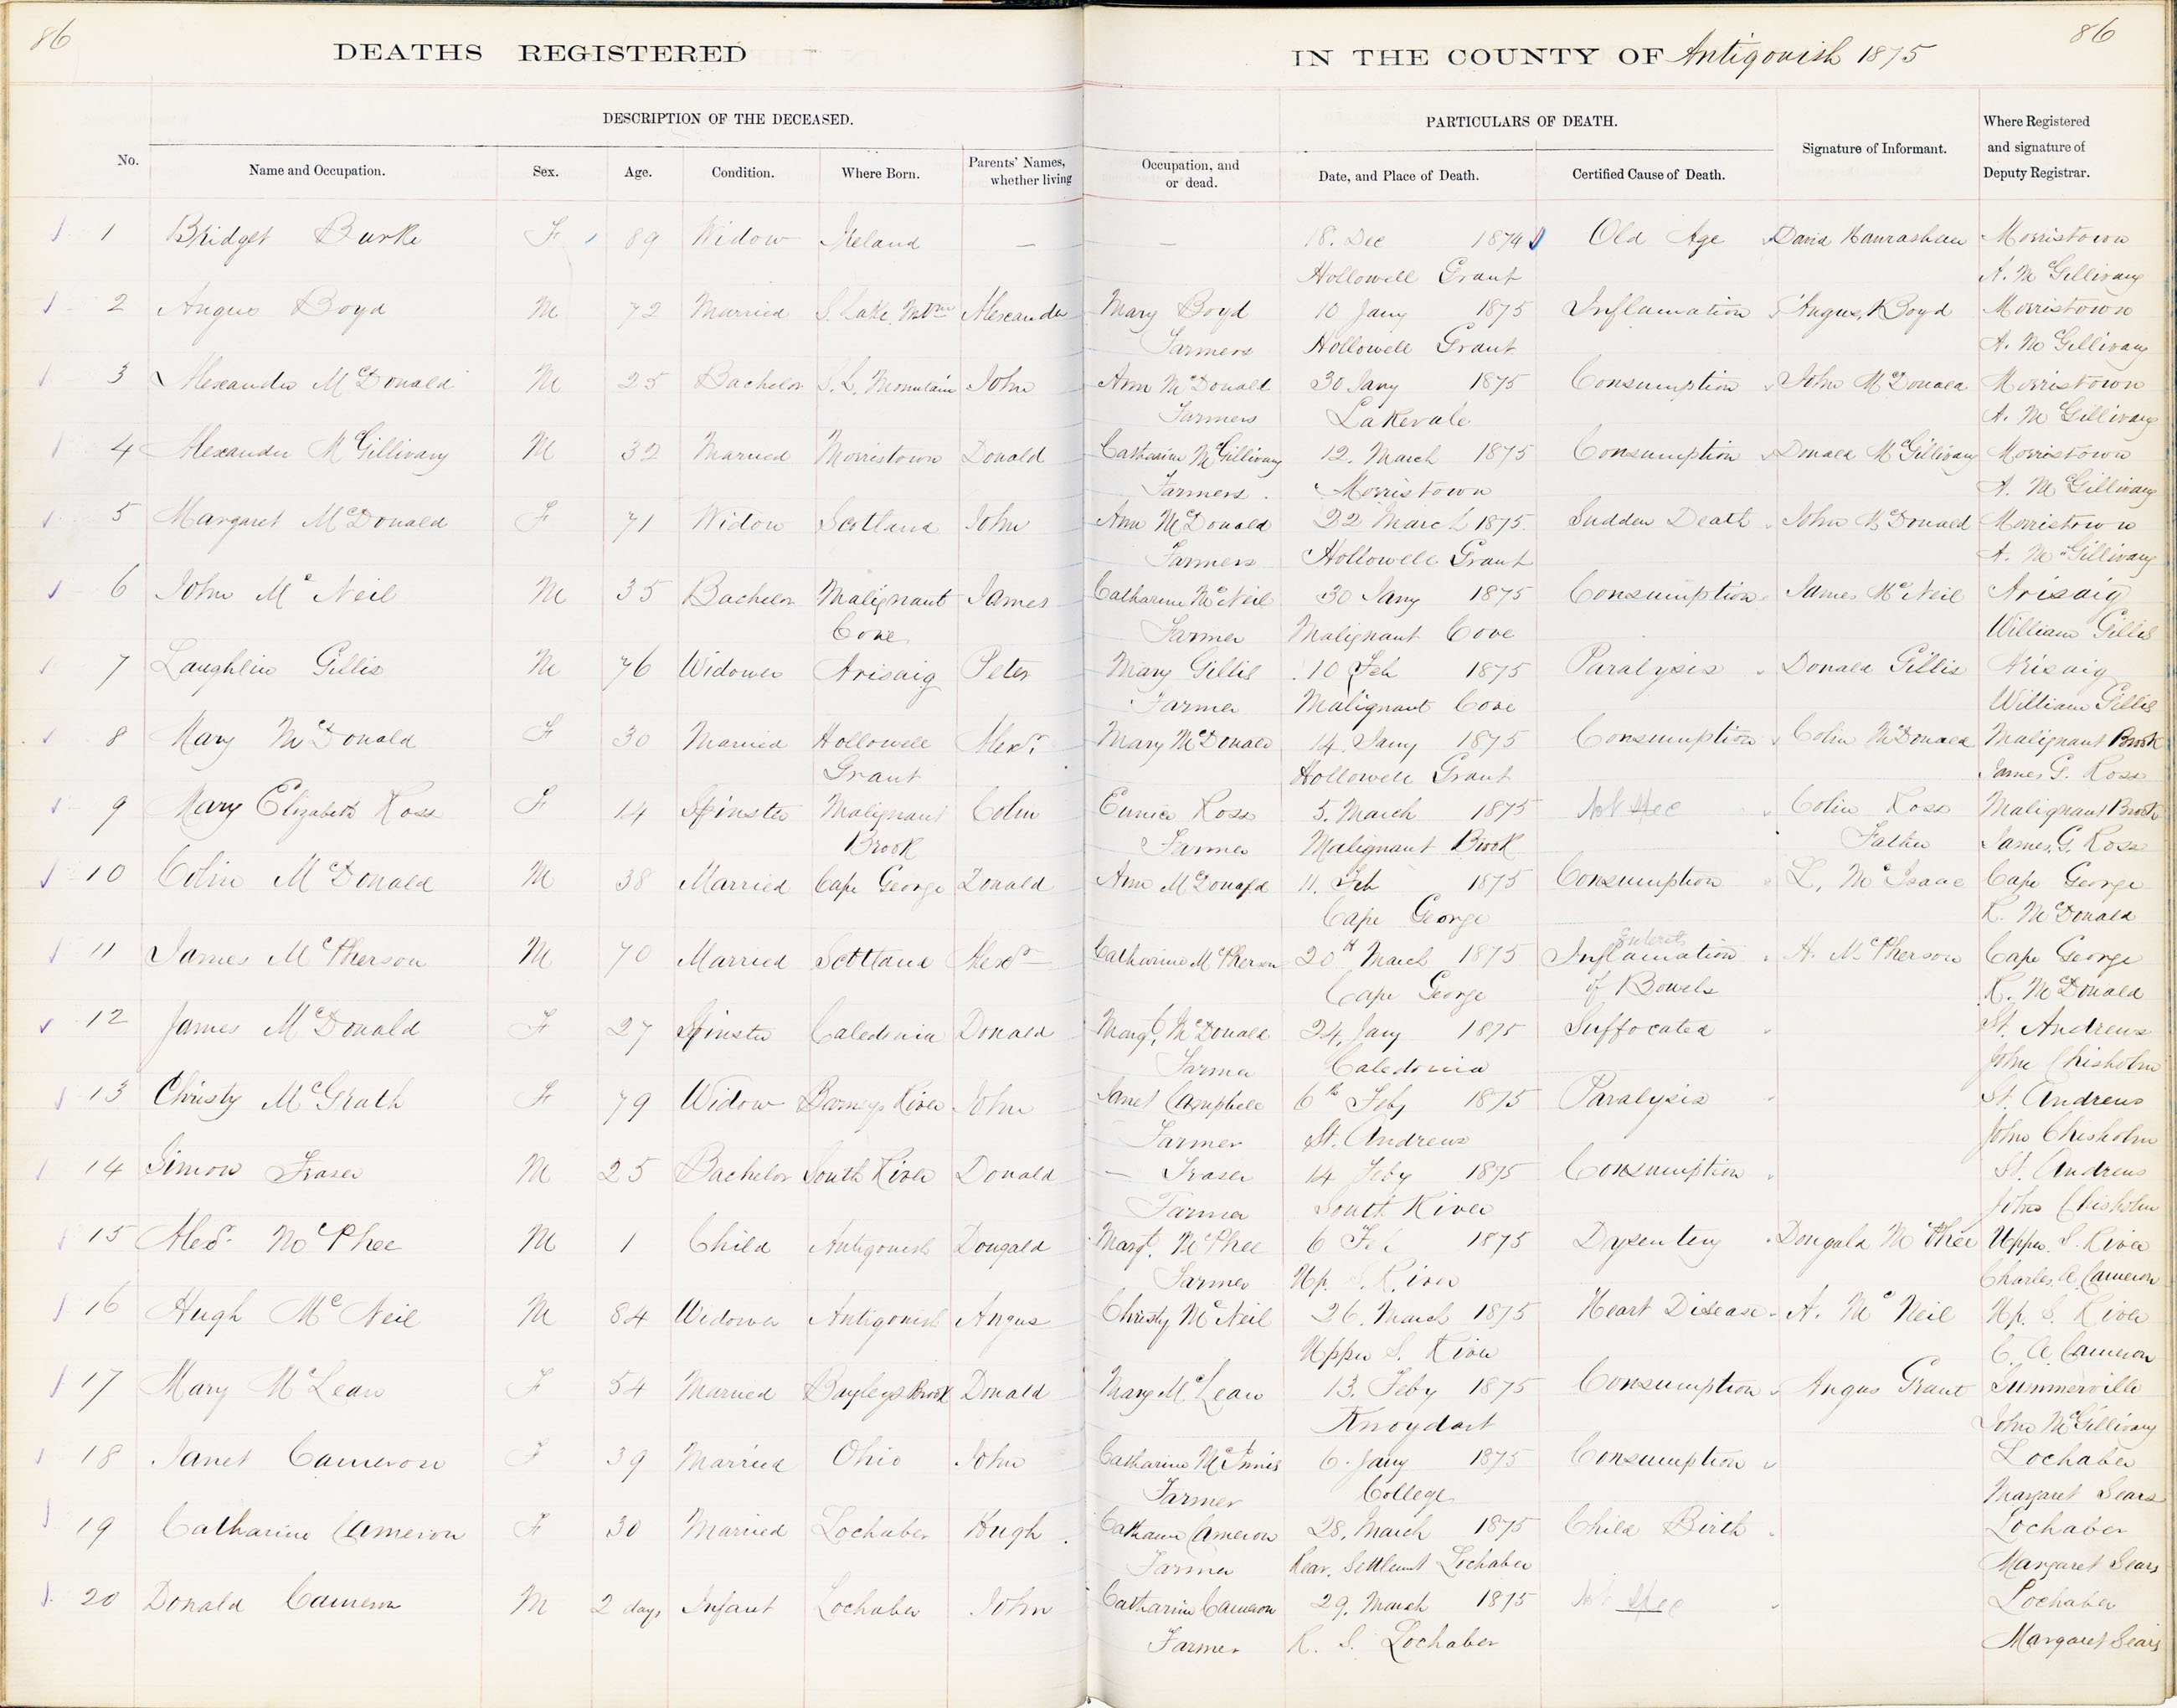 86
86
DEATHS REGISTERED IN THE COUNTY OF Antigonish 1875
DESCRIPTION OF THE DECEASED. PARTICULARS OF DEATH.
No. Name and Occupation. Sex. Age. Condition. Where Born. Parents' Names, whether living Occupation, and or dead. Date, and Place of Death. Certified Cause of Death. Signature of Informant. Where Registered and signature of Deputy Registrar.
1 Bridget Burke F 89 Widow Ireland — — 18. Dec 1874 Old Age David Hanrashan Morristown
Hollowell Grant A. McGillivary
2 Angus Boyd M 72 Married S. Lake Mtn Alexander Mary Boyd 10 Jany 1875 Inflamation Angus Boyd Morristown
Farmers Hollowell Grant A. McGillivary
3 Alexander McDonald M 25 Bachelor S. L. Mountain John Ann McDonald 30 Jany 1875 Consumption John McDonald Morristown
Farmers Lakevale A. McGillivary
4 Alexander McGillivary M 32 Married Morristown Donald Catharine McGillivary 12. March 1875 Consumption Donald McGillivary Morristown
Farmers. Morristown A. McGillivary
5 Margaret McDonald F 71 Widow Scotland John Ann McDonald 22 March 1875. Sudden Death John McDonald Morristown
Farmers Hollowell Grant A. McGillivary
6 John Mc Neil M 35 Bachelor Malignant James Catharine McNeil 30 Jany 1875 Consumption James McNeil Arisaig
Cove Farmer Malignant Cove William Gillis
7 Laughlin Gillis M 76 Widower Arisaig Peter Mary Gillis 10 Feb 1875 Paralysis Donald Gillis Arisaig
Farmer Malignant Cove William Gillis
8 Mary McDonald F 30 Married Hollowell Alexr. Mary McDonald 14. Jany 1875 Consumption Colin McDonald Malignant Brook
Grant Hollowell Grant James G. Ross
9 Mary Elizabeth Ross F 14 Spinster Malignant Colin Eunice Ross 5. March 1875 Not Spec Colin Ross Malignant Brook
Brook Farmer Malignant Brook Father James G. Ross
10 Colin McDonald M 38 Married Cape George Donald Ann McDonald 11. Feb 1875 Consumption L. McIsaac Cape George
Cape George R. McDonald
11 James McPherson M 70 Married Scottland Alexr Catharine McPherson 20th March 1875 Inflamation H. McPherson Cape George
Cape George of Bowels R. McDonald
12 James McDonald F 27 Spinster Caledonia Donald Margt. McDonald 24. Jany 1875 Suffocated St. Andrews
Farmer Caledonia John Chisholm
13 Christy McGrath F 79 Widow Barneys River John Janet Campbell 6th Feby 1875 Paralysis St. Andrews
Farmer St. Andrews John Chisholm
14 Simon Fraser M 25 Bachelor South River Donald — Fraser 14 Feby 1875 Consumption St. Andrews
Farmer South River John Chisholm
15 Alexr. McPhee M 1 Child Antigonish Dougald Margt. McPhee 6 Feb 1875 Dysentery Dougald McPhee Upper S. River
Farmer Up. S. River Charles A. Cameron
16 Hugh Mc Neil M 84 Widower Antigonish Angus Christy McNeil 26. March 1875 Heart Disease A. Mc Neil Up. S. River
Upper S. River C. A. Cameron
17 Mary McLean F 54 Married Bayleys Brook Donald Mary McLean 13. Feby 1875 Consumption Angus Grant Summerville
Knoydart John McGillivary
18 Janet Cameron F 39 Married Ohio John Catharine McInnis 6. Jany 1875 Consumption Lochaber
Farmer College Margaret Sears
19 Catharine Cameron F 30 Married Lochaber Hugh Catharine Cameron 28. March 1875 Child Birth Lochaber
Farmer Rear. Settlemt Lochaber Margaret Sears
20 Donald Cameron M 2 days Infant Lochaber John Catharine Cameron 29. March 1875 Not Spec Lochaber
Farmer R. S. Lochaber Margaret Sears